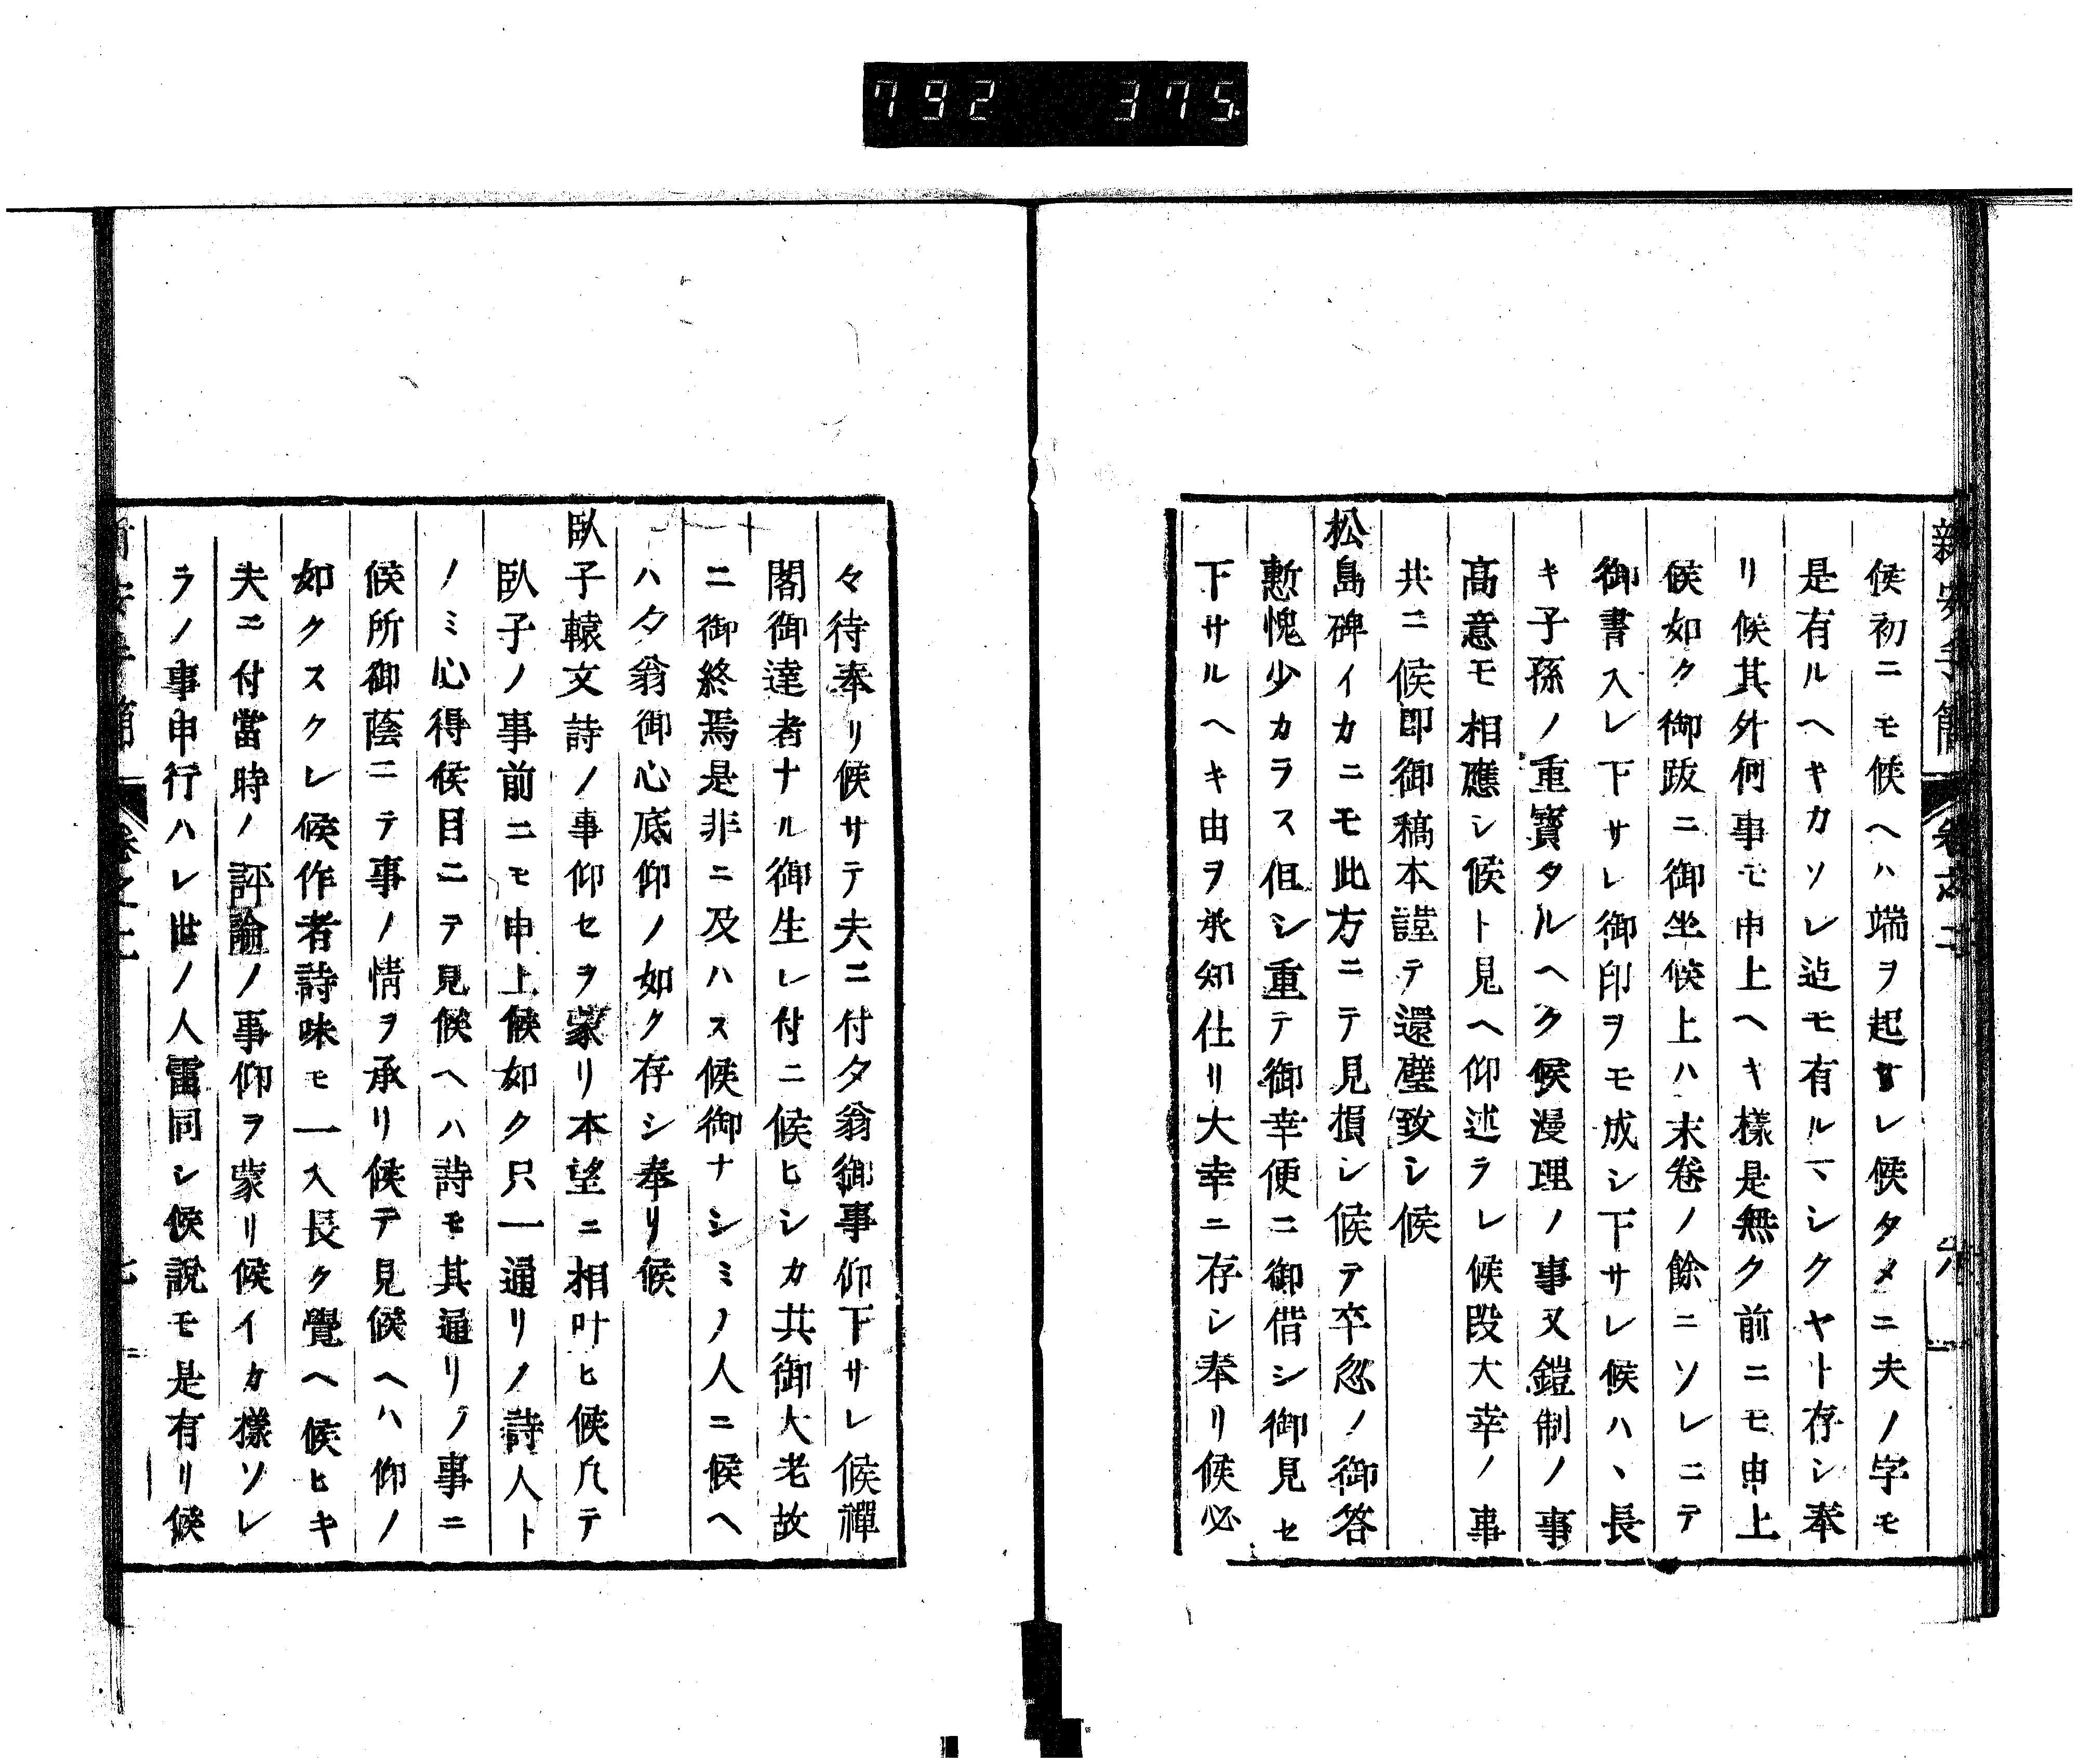 792 375
新安手簡 卷之二
候初ニモ候ヘハ端ヲ起サレ候タメニ夫ノ字モ
是有ルヘキカソレ迠モ有ルマシクヤト存シ奉
リ候其外何事モ申上ヘキ樣是無ク前ニモ申上
候如ク御跋ニ御坐候上ハ末卷ノ餘ニソレニテ
御書入レ下サレ御印ヲモ成シ下サレ候ハヽ長
キ子孫ノ重寶タルヘク候漫理ノ事又鎧制ノ事
高意モ相應シ候ト見ヘ仰述ラレ候段大幸ノ事
共ニ候即御稿本謹テ還璧致シ候
松島碑イカニモ此方ニテ見損シ候テ卒忽ノ御答
慙愧少カラス但シ重テ御幸便ニ御借シ御見セ
下サルヘキ由ヲ承知仕リ大幸ニ存シ奉リ候必
々待奉リ候サテ夫ニ付夕翁御事仰下サレ候禪
閤御達者ナル御生レ付ニ候ヒシカ共御大老故
ニ御終焉是非ニ及ハス候御ナシミノ人ニ候ヘ
ハ夕翁御心底仰ノ如ク存シ奉リ候
臥子轅文詩ノ事仰セヲ蒙リ本望ニ相叶ヒ候凢テ
臥子ノ事前ニモ申上候如ク只一通リノ詩人ト
ノミ心得候目ニテ見候ヘハ詩モ其通リノ事ニ
候所御蔭ニテ事ノ情ヲ承リ候テ見候ヘハ仰ノ
如クスクレ候作者詩味モ一入長ク覺ヘ候ヒキ
夫ニ付當時ノ評論ノ事仰ヲ蒙リ候イカ樣ソレ
ラノ事申行ハレ世ノ人雷同シ候説モ是有リ候